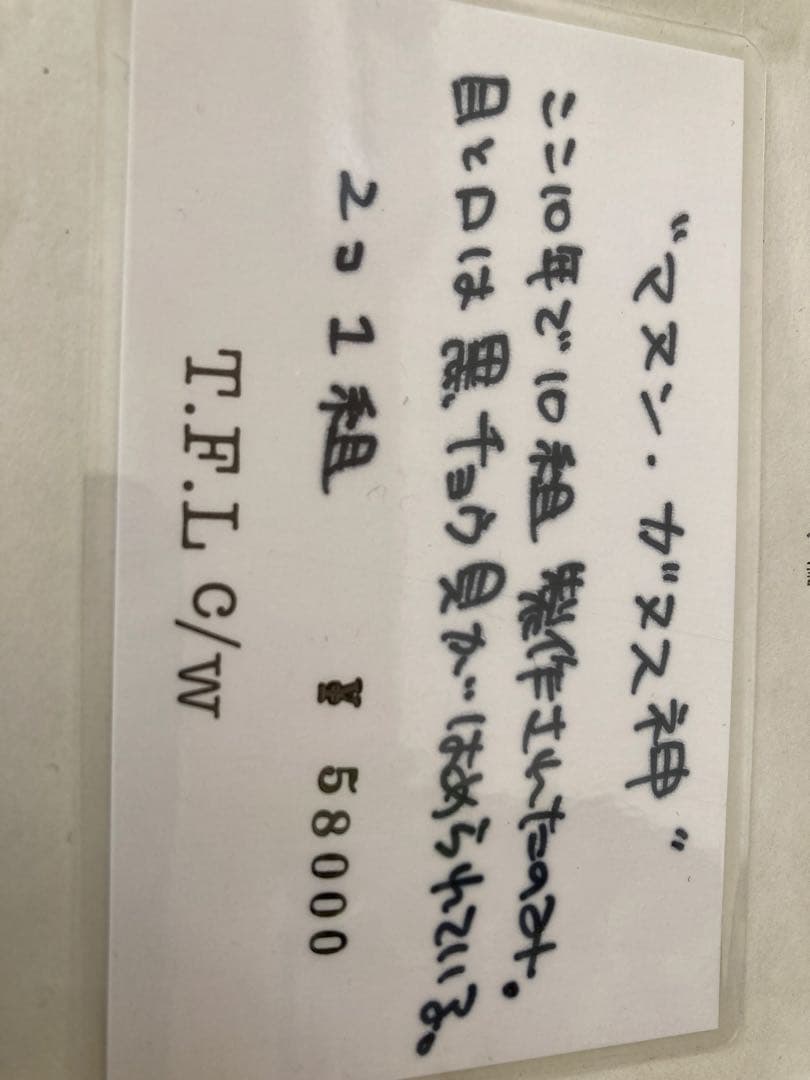 "マヌン・ガヌス神"
ここ10年で10組 製作されたのみ。
目と口は黒チョウ貝がはめられている。
2コ1組 ¥58000
T.F.L C/W